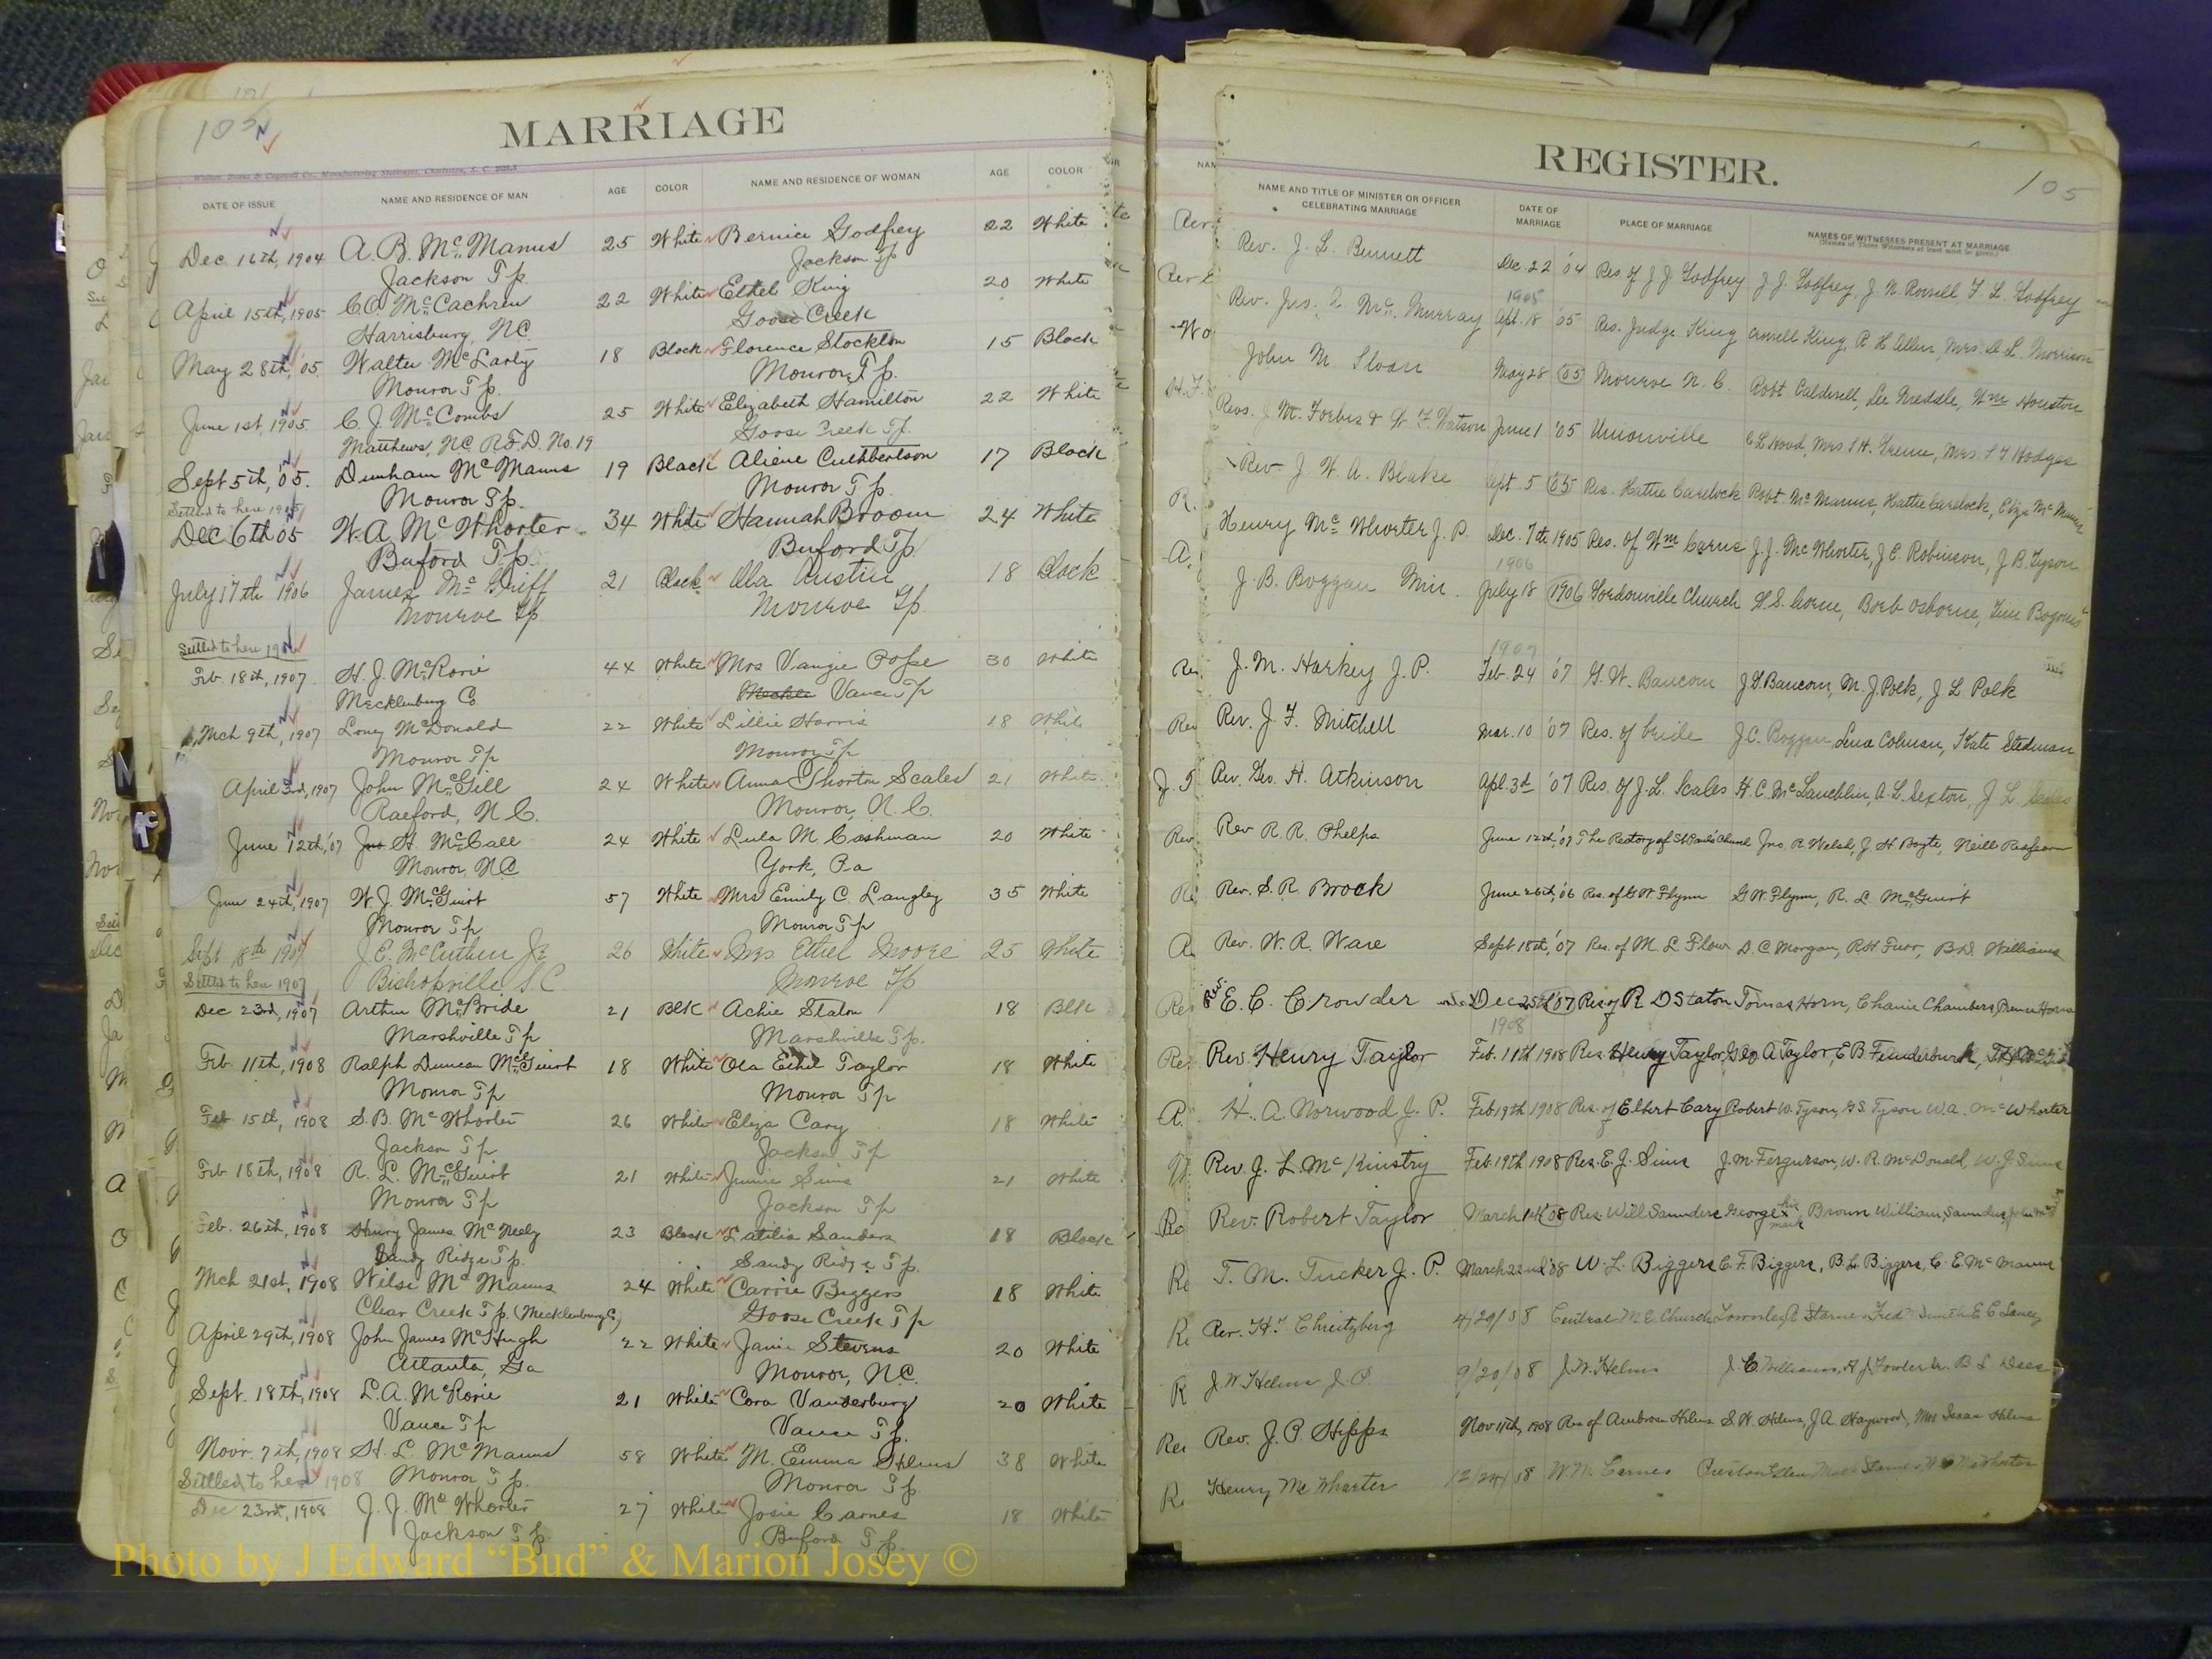 105
MARRIAGE
Walker, Evans & Cogswell Co., Manufacturing Stationers, Charleston, S. C.
DATE OF ISSUE NAME AND RESIDENCE OF MAN AGE COLOR NAME AND RESIDENCE OF WOMAN AGE COLOR
Dec 16th, 1904 A. B. McManus 25 White Bernice Godfrey 22 White
Jackson Tp Jackson Tp
April 15th, 1905 C. O. McCachren 22 White Ethel King 20 White
Harrisburg, NC. Goose Creek
May 28th, '05 Walter McLarty 18 Black Florence Stockton 15 Black
Monroe Tp. Monroe Tp.
June 1st, 1905 C. J. McCombs 25 White Elizabeth Hamilton 22 White
Matthews, NC R.F.D. No. 19 Goose Creek Tp.
Sept 5th, '05. Dunham McManus 19 Black Aliene Cuthbertson 17 Black
Monroe Tp. Monroe Tp.
Settled to here 1905
Dec 6th 05 W. A. McWhorter 34 White Hannah Broom 24 White
Buford Tp. Buford Tp
July 17th 1906 James McGriff 21 Black Austin 18 Black
Monroe Tp Monroe Tp.
Settled to here 1906
Feb. 18th, 1907 H. J. McRorie 44 White Mrs Vangie Pope 30 White
Mecklenburg Co Vance Tp
Mch 9th, 1907 Loney McDonald 22 White Lillie Harris 18 White
Monroe Tp Monroe Tp
April 3rd, 1907 John McGill 24 White Anna Thorton Scales 21 White
Raeford, N.C. Monroe, N.C.
June 12th, '07 Jno H. McCall 24 White Lula M. Cashman 20 White
Monroe, NC York, Pa
June 24th, 1907 W. J. McGuirt 57 White Mrs Emily C. Langley 35 White
Monroe Tp Monroe Tp
Sept 18th 1907 J. E. McCutchen Jr 26 White Mrs. Ethel Moore 25 White
Settled to here 1907 Bishopville S.C Monroe Tp
Dec 23rd, 1907 Arthur McBride 21 Blk Achie Staton 18 Blk
Marshville Tp Marshville Tp.
Feb 11th, 1908 Ralph Duncan McGuirt 18 White Ola Ethel Taylor 18 White
Monroe Tp Monroe Tp
Feb 15th, 1908 S. B. McWhorter 26 White Eliza Cary 18 White
Jackson Tp Jackson Tp
Feb 18th, 1908 R. L. McGuirt 21 White Jennie Sims 21 White
Monroe Tp Jackson Tp
Feb. 26th, 1908 Henry James McNeely 23 Black Sanders 18 Black
Sandy Ridge Tp. Sandy Ridge Tp.
Mch 21st, 1908 Wilse McManus 24 White Carrie Biggers 18 White
Clear Creek Tp. (Mecklenburg Co) Goose Creek Tp
April 29th, 1908 John James McHugh 22 White Janie Stevens 20 White
Atlanta, Ga Monroe, N.C.
Sept. 18th, 1908 L. A. McRorie 21 White Cora Vanderburg 20 White
Vance Tp Vance Tp.
Novr. 7th, 1908 H. L. McManus 58 White M. Emma Helms 38 White
Settled to here 1908 Monroe Tp. Monroe Tp.
Dec 23rd, 1908 J. J. McWhorter 27 White Josie Carnes 18 White
Jackson Tp. Buford Tp.
REGISTER.
105
NAME AND TITLE OF MINISTER OR OFFICER CELEBRATING MARRIAGE DATE OF MARRIAGE PLACE OF MARRIAGE NAMES OF WITNESSES PRESENT AT MARRIAGE
(Names of Three Witnesses at least must be given.)
Rev. J. L. Bennett Dec. 22 '04 Res of J J Godfrey J. J. Godfrey, J. N. T. L. Godfrey
1905
Rev. Jno. McMurray Apl. 18 '05 Res. Judge King King, R H Allen, Mrs. Morrison
John M Sloan May 28 '05 Monroe N. C. Robt Caldwell, Lee Wm Houston
Revs. J. M. Forbis & W. F. Watson June 1 '05 Unionville Mrs. Mrs.
Rev. J. W. A. Blake Sept. 5 '05 Res. Hattie Robt McManus, Hattie Eliza McManus
Henry McWhorter J. P. Dec. 7th 1905 Res. of Wm Carnes J. J. McWhorter, J. E. Robinson, J B. Tyson
1906
J. B. Boggan Min. July 18 1906 Church Osborne,
1907
J. M. Harkey J. P. Feb. 24 '07 G. W. Baucom J. G. Baucom, M. J. Polk, J L Polk
Rev. J. F. Mitchell Mar. 10 '07 Res. of bride J. C. Boggan, Lena Coleman, Kate Stedman
Rev. Geo. H. Atkinson Apl 3d '07 Res. of J. L. Scales H. C. McLauchlin, A. L. Sexton, J L Scales
Rev R. R. Phelps June 12th, '07 The Rectory of St Paul's Church Jno. R Welsh, J H Boyte, Neill Redfearn
Rev. S. R. Brock June 26th, '06 Res. of G W Flynn G W. Flynn, R. L. McGuirt
Rev. W. R. Ware Sept 18th, '07 Res. of M. L Flow D. C Morgan, R H Furr, B. D. Williams
Rev. E. C. Crowder Dec 25th '07 Res of R D Staton Tomas Horn, Charie Chambers, Horn
1908
Rev. Henry Taylor Feb. 11th 1908 Res. Henry Taylor, Geo A Taylor, E B. Funderburk,
H. A. Norwood J. P. Feb 19th 1908 Res. of Elbert Cary Robert W. Tyson, G. S. Tyson W. A. McWhorter
Rev. J. L. McKinstry Feb. 19th 1908 Res. E. J. Sims J. M. Fergurson, W. R. McDonald, W. J. Sims
Rev. Robert Taylor March 1st '08 Res. Will Saunders George his x mark Brown William Saunders,
T. M. Tucker J. P. March 22nd '08 W. L. Biggers C. F. Biggers, B. L. Biggers, C. E. McManus
Rev. H. Chreitzberg 4/29/08 Central M E Church Townley R Starnes Fred Smith E C Laney
J. W. Helms J. P. 9/20/08 J. W. Helms J. C. Williams, A. J. Fowler
Rev. J. P. Hipps Nov 11th, 1908 Res of Ambrose Helms S. H. Helms, J. A. Haywood, Mrs Isaac Helms
Henry McWhorter 12/24/08 W M. Carnes McWhorter
Photo by J Edward “Bud” & Marion Josey ©